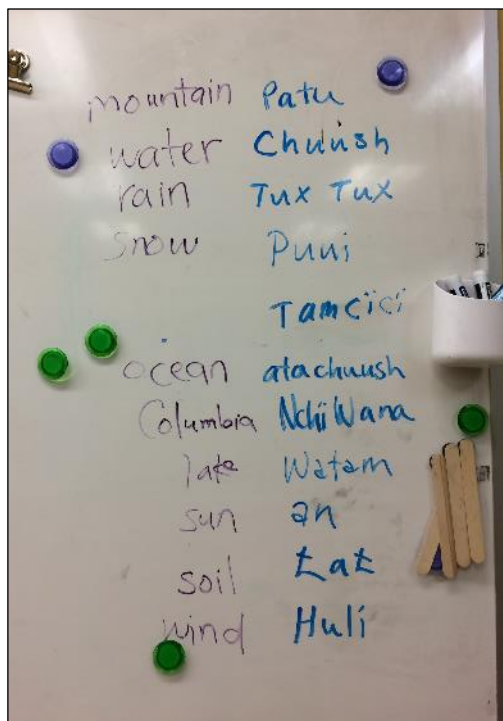 mountain Patu
water Chuush
rain Tux Tux
snow Puui
Tamcïcí
ocean atachuush
Columbia Nchï Wana
lake Watam
sun an
soil ŁaŁ
wind Huli